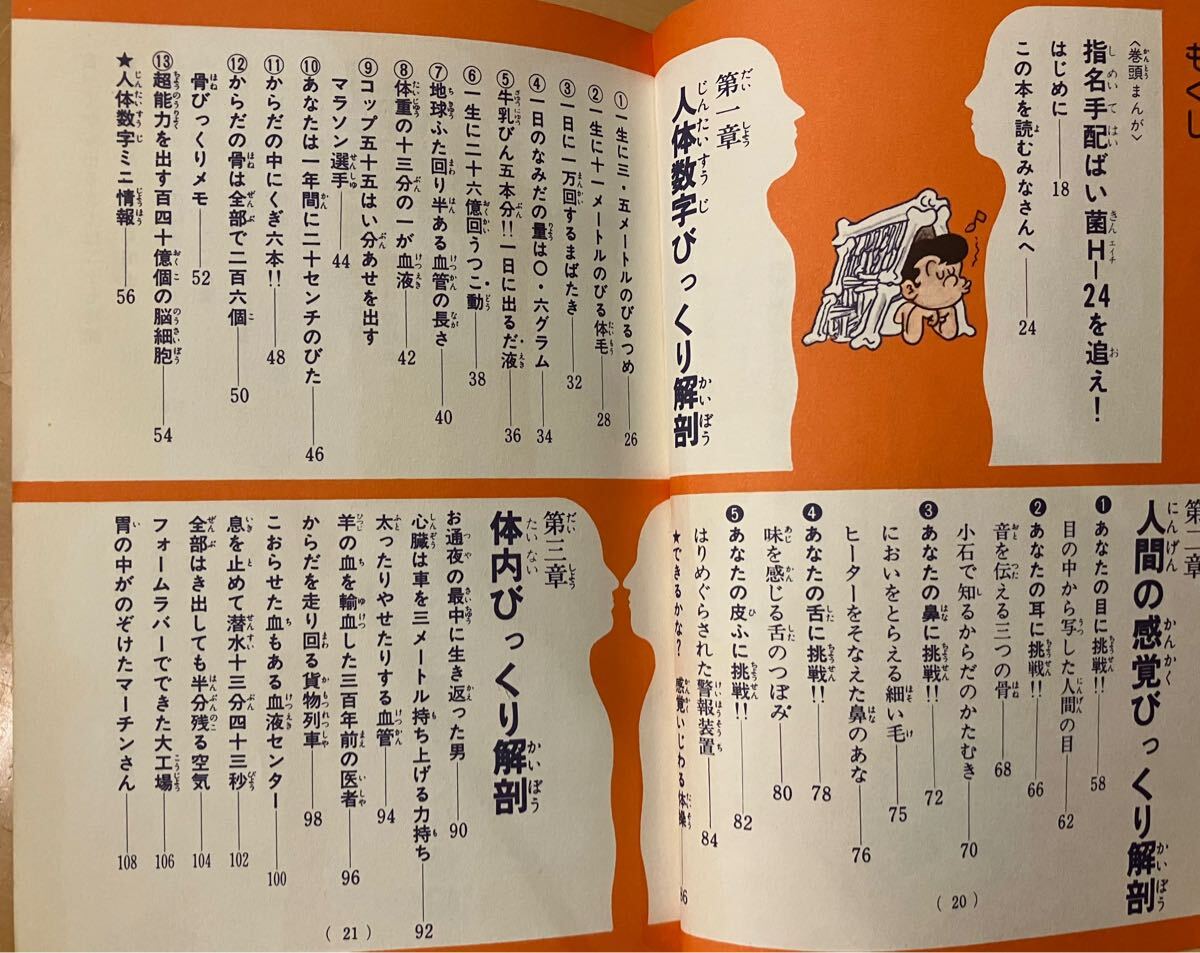 もくじ
〈巻頭まんが〉
指名手配ばい菌H-24を追え！
はじめに 18
この本を読むみなさんへ 24
第一章
人体数字びっくり解剖
①一生に三・五メートルのびるつめ 26
②一生に十一メートルのびる体毛 28
③一日に一万回するまばたき 32
④一日のなみだの量は〇・六グラム 34
⑤牛乳びん五本分!!一日に出るだ液 36
⑥一生に二十六億回うつこ動 38
⑦地球ふた回り半ある血管の長さ 40
⑧体重の十三分の一が血液 42
⑨コップ五十五はい分あせを出す
マラソン選手 44
⑩あなたは一年間に二十センチのびた 46
⑪からだの中にくぎ六本!! 48
⑫からだの骨は全部で二百六個 50
骨びっくりメモ 52
⑬超能力を出す百四十億個の脳細胞 54
★人体数字ミニ情報 56
第二章
人間の感覚びっくり解剖
❶あなたの目に挑戦!! 58
目の中から写した人間の目 62
❷あなたの耳に挑戦!! 66
音を伝える三つの骨 68
小石で知るからだのかたむき 70
❸あなたの鼻に挑戦!! 72
においをとらえる細い毛 75
ヒーターをそなえた鼻のあな 76
❹あなたの舌に挑戦!! 78
味を感じる舌のつぼみ 80
❺あなたの皮ふに挑戦!! 82
はりめぐらされた警報装置 84
★できるかな？ 感覚いじわる体操 86
( 20 )
第三章
体内びっくり解剖
お通夜の最中に生き返った男 90
心臓は車を三メートル持ち上げる力持ち 92
太ったりやせたりする血管 94
羊の血を輸血した三百年前の医者 96
からだを走り回る貨物列車 98
こおらせた血もある血液センター 100
息を止めて潜水十三分四十三秒 102
全部はき出しても半分残る空気 104
フォームラバーでできた大工場 106
胃の中がのぞけたマーチンさん 108
( 21 )